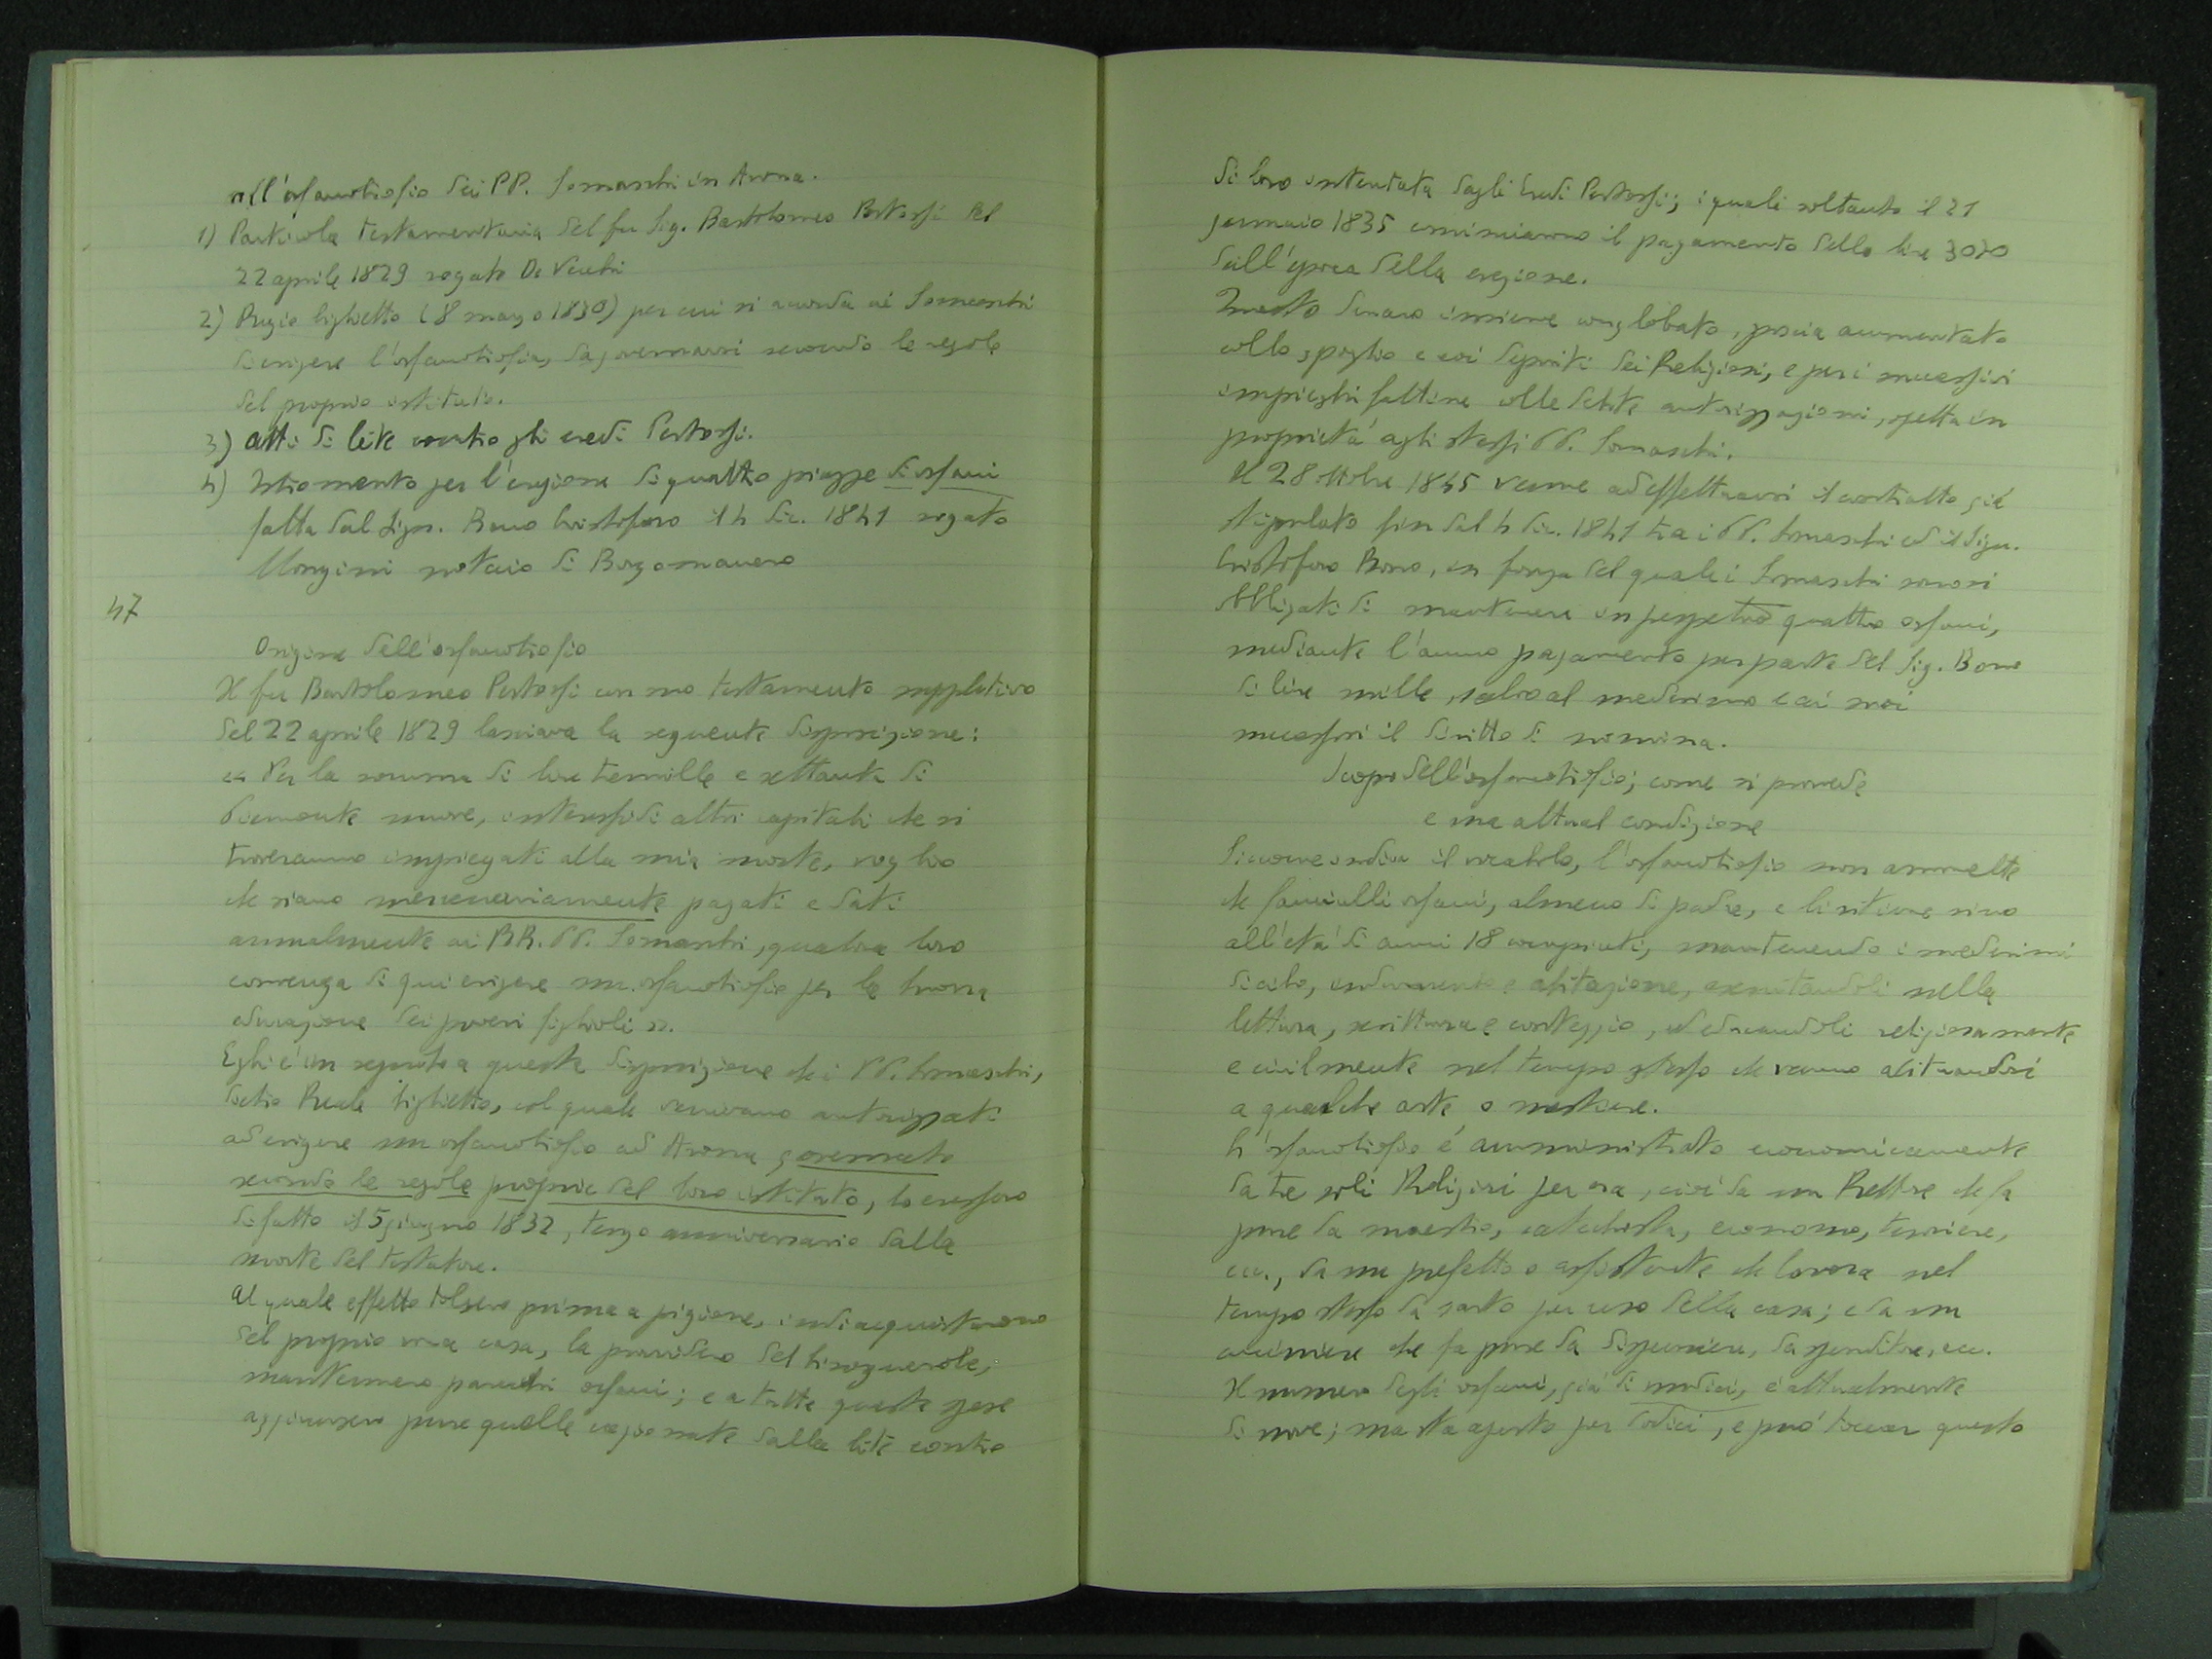 all'orfanotrofio dei PP. Somaschi in Arona.
1) Particola testamentaria del fu Sig. Bartolomeo Pertossi del
22 aprile 1829 rogato De Vecchi
2) Regio biglietto (8 marzo 1830) per cui si accorda ai Somaschi
di erigere l'orfanotrofio, da governarsi secondo le regole
del proprio istituto.
3) Atti di lite contro gli eredi Pertossi.
4) Istromento per l'erezione di quattro piazze di orfani
fatta dal Sign. Bono Cristoforo il 4 dic. 1841 rogato
Mongini notaio di Borgomanero
47
Origine dell'orfanotrofio
Il fu Bartolomeo Pertossi con suo testamento suppletivo
del 22 aprile 1829 lasciava la seguente disposizione:
« Per la somma di lire tremille e settanta di
Piemonte nuove, interessi di altri capitali che si
troveranno impiegati alla mia morte, voglio
che siano annualmente pagati e dati
annualmente ai RR. PP. Somaschi, qualora loro
convenga di qui erigere un orfanotrofio per la buona
educazione dei poveri figliuoli ».
Egli è in seguito a questa disposizione che i PP. Somaschi,
dietro Reale biglietto, col quale venivano autorizzati
ad erigere un orfanotrofio ad Arona governato
secondo le regole proprie del loro istituto, lo eressero
di fatto il 5 giugno 1832, terzo anniversario dalla
morte del testatore.
Al quale effetto tolsero prima a pigione, indi acquistarono
del proprio una casa, la provvidero del bisognevole,
mantennero parecchi orfani; e a tutte queste spese
aggiunsero pure quelle cagionate dalla lite contro
di loro intentata dagli eredi Pertossi; i quali soltanto il 21
gennaio 1835 cominciarono il pagamento delle lire 3070
dall'epoca della erezione.
Questo denaro insieme conglobato, poscia aumentato
collo spoglio e coi depositi dei Religiosi, e per i successivi
impieghi fattine colle debite autorizzazioni, spetta in
proprietà agli stessi PP. Somaschi.
Il 28 ottobre 1845 venne ad effettuarsi il contratto già
stipulato fin dal 4 dic. 1841 tra i PP. Somaschi ed il Sign.
Cristoforo Bono, in forza del quale i Somaschi sonosi
obbligati di mantenere in perpetuo quattro orfani,
mediante l'annuo pagamento per parte del Sig. Bono
di lire mille, salvo al medesimo e ai suoi
successori il diritto di nomina.
Scopo dell'orfanotrofio; come si provvede
e sua attual condizione
Siccome indica il vocabolo, l'orfanotrofio non ammette
che fanciulli orfani, almeno di padre, e li ritiene sino
all'età di anni 18 compiuti, mantenendo i medesimi
di cibo, indumento e abitazione, esercitandoli nella
lettura, scrittura e conteggio, ed educandoli religiosamente
e civilmente nel tempo stesso che vanno abituandosi
a qualche arte o mestiere.
L'orfanotrofio è amministrato economicamente
da tre soli Religiosi per ora, cioè da un Rettore che fa
pure da maestro, catechista, economo, tesoriere,
ecc., da un prefetto o assistente che lavora nel
tempo stesso da sarto per uso della casa; e da un
cuciniere che fa pure da dispensiere, da spenditore, ecc.
Il numero degli orfani, già di undici, è attualmente
di nove; ma sta aperto per dodici, e può toccar questo